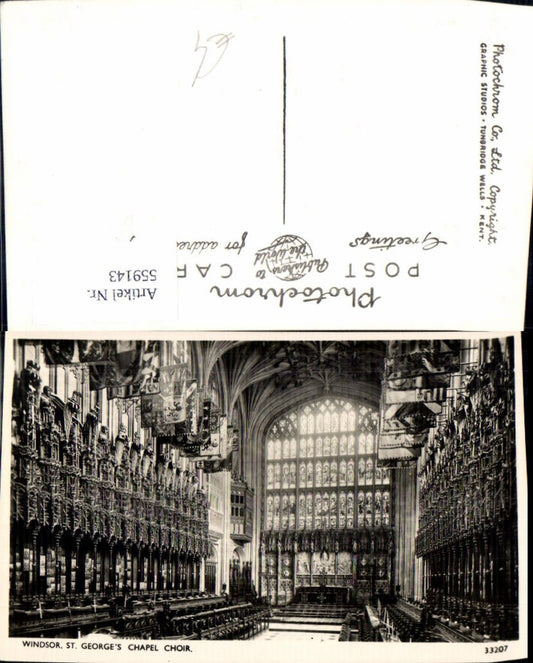 Photochrom Co, Ltd. Copyright.
GRAPHIC STUDIOS • TUNBRIDGE WELLS • KENT.
Photochrom
POST CAR
Publishers to
the World
Greetings
for addre
Artikel Nr.
559143
WINDSOR, ST. GEORGE'S CHAPEL CHOIR.
33207